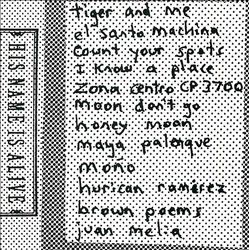 HIS NAME IS ALIVE
tiger and me
el santo machina
count your spots
I know a place
zona centro CP 3700
moon don't go
honey moon
maya palenque
moño
hurican ramírez
brown poems
juan melia